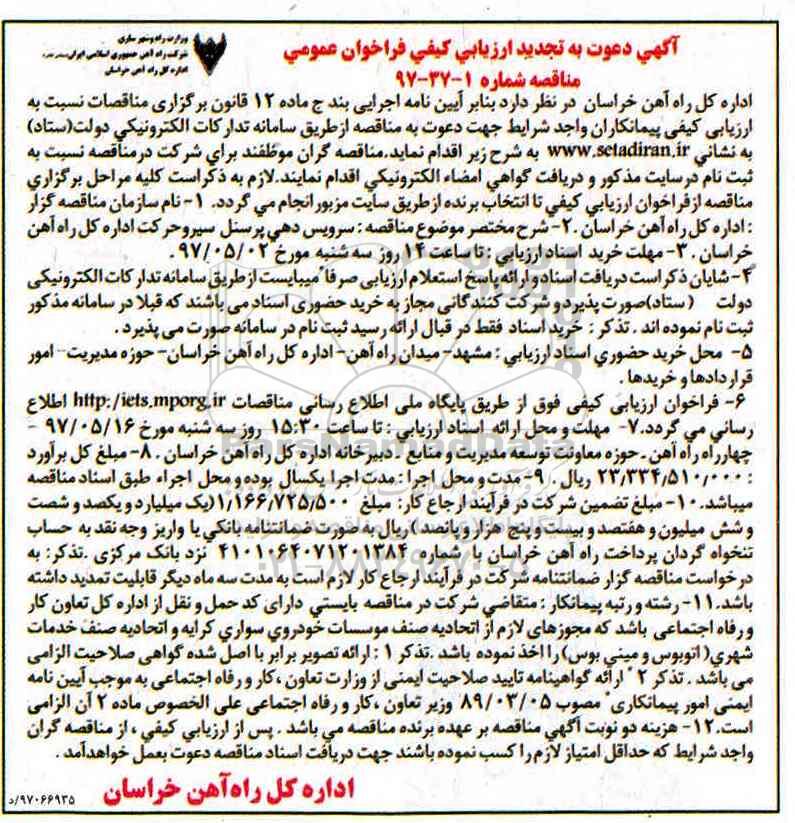 وزارت راه و شهر سازی
شرکت راه آهن جمهوری اسلامی ایران
اداره کل راه آهن خراسان
آگهي دعوت به تجديد ارزيابي كيفي فراخوان عمومي
مناقصه شماره ۱-۳۷-۹۷
اداره کل راه آهن خراسان در نظر دارد بنابر آیین نامه اجرایی بند ج ماده ۱۲ قانون برگزاری مناقصات نسبت به
ارزیابی کیفی پیمانکاران واجد شرایط جهت دعوت به مناقصه ازطریق سامانه تدارکات الکترونیکی دولت(ستاد)
به نشاني www.setadiran.ir به شرح زیر اقدام نماید.مناقصه گران موظفند براي شرکت درمناقصه نسبت به
ثبت نام درسایت مذکور و دریافت گواهي امضاء الکترونیکي اقدام نمایند.لازم به ذکراست کلیه مراحل برگزاري
مناقصه ازفراخوان ارزیابي کیفي تا انتخاب برنده ازطریق سایت مزبورانجام مي گردد. ۱- نام سازمان مناقصه گزار
: اداره کل راه آهن خراسان .۲- شرح مختصر موضوع مناقصه : سرویس دهي پرسنل سیروحرکت اداره کل راه آهن
خراسان . ۳- مهلت خرید اسناد ارزیابي : تا ساعت ۱۴ روز سه شنبه مورخ ۹۷/۰۵/۰۲ .
۴-شایان ذکر است دریافت اسناد و ارائه پاسخ استعلام ارزیابی صرفا ً میبایست ازطریق سامانه تدارکات الکترونیکی
دولت (ستاد)صورت پذیرد و شرکت کنندگانی مجاز به خرید حضوری اسناد می باشند که قبلا در سامانه مذکور
ثبت نام نموده اند . تذکر : خرید اسناد فقط در قبال ارائه رسید ثبت نام در سامانه صورت می پذیرد .
۵- محل خرید حضوري اسناد ارزیابي : مشهد- میدان راه آهن- اداره کل راه آهن خراسان- حوزه مدیریت- امور
قراردادها و خریدها .
۶- فراخوان ارزیابی کیفی فوق از طریق پایگاه ملی اطلاع رسانی مناقصات http:/iets.mporg.ir اطلاع
رسانی می گردد.۷- مهلت و محل ارائه اسناد ارزیابي : تا ساعت ۱۵:۳۰ روز سه شنبه مورخ ۹۷/۰۵/۱۶ -
چهارراه راه آهن ـ حوزه معاونت توسعه مدیریت و منابع ـ دبیرخانه اداره کل راه آهن خراسان . ۸- مبلغ کل برآورد
: ۲۳/۳۳۴/۵۱۰/۰۰۰ ریال . ۹- مدت و محل اجرا : مدت اجرا یکسال بوده و محل اجراء طبق اسناد مناقصه
میباشد.۱۰- مبلغ تضمین شرکت در فرآیند ارجاع کار: مبلغ ۱/۱۶۶/۷۲۵/۵۰۰(یک میلیارد و یکصد و شصت
و شش میلیون و هفتصد و بیست و پنج هزار و پانصد)ریال به صورت ضمانتنامه بانکي یا واریز وجه نقد به حساب
تنخواه گردان پرداخت راه آهن خراسان با شماره ۴۱۰۱۰۶۴۰۷۱۲۰۱۳۸۴ نزد بانک مرکزی .تذکر: به
درخواست مناقصه گزار ضمانتنامه شرکت در فرآیند ارجاع کار لازم است به مدت سه ماه دیگر قابلیت تمدید داشته
باشد.۱۱- رشته و رتبه پیمانکار : متقاضي شرکت در مناقصه بایستي داراي کد حمل و نقل از اداره کل تعاون کار
و رفاه اجتماعی باشد که مجوزهای لازم از اتحادیه صنف موسسات خودروي سواري کرایه و اتحادیه صنف خدمات
شهري( اتوبوس و میني بوس) را اخذ نموده باشد .تذکر ۱ : ارائه تصویر برابر با اصل شده گواهی صلاحیت الزامی
می باشد . تذکر ۲ " ارائه گواهینامه تایید صلاحیت ایمنی از وزارت تعاون ،کار و رفاه اجتماعی به موجب آیین نامه
ایمنی امور پیمانکاری" مصوب ۸۹/۰۳/۰۵ وزیر تعاون ،کار و رفاه اجتماعی علی الخصوص ماده ۲ آن الزامی
است.۱۲- هزینه دو نوبت آگهي مناقصه بر عهده برنده مناقصه مي باشد . پس از ارزیابي کیفي ، از مناقصه گران
واجد شرایط که حداقل امتیاز لازم را کسب نموده باشند جهت دریافت اسناد مناقصه دعوت بعمل خواهدآمد .
اداره کل راه‌آهن خراسان
۹۷۰۶۶۹۳۵/د
ParsNamadData
۰۲۱-۸۸۳۴۹۶۷۰-۵